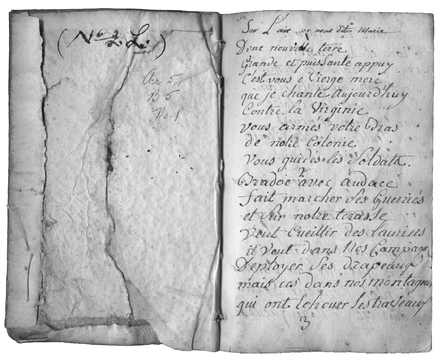 (No 2. L.)
Ar 5
B 6
No 1
Sur L'air or nous dites Marie
D'une nouvelle terre
Grande et puissante appuy
C'est vous o Vierge mere
que je chante aujourd'huy
Contre la Virginie
vous armés votre Bras
de notre Colonie
Vous guidés les Soldats.
Bradoc avec audace
fait marcher ses Guerriés
et sur notre terasse
Veut cueillir des lauriers
il veut dans nos Campagnes
Deployer ses drapeaux
mais ces dans nos montagnes
qui ont les
3